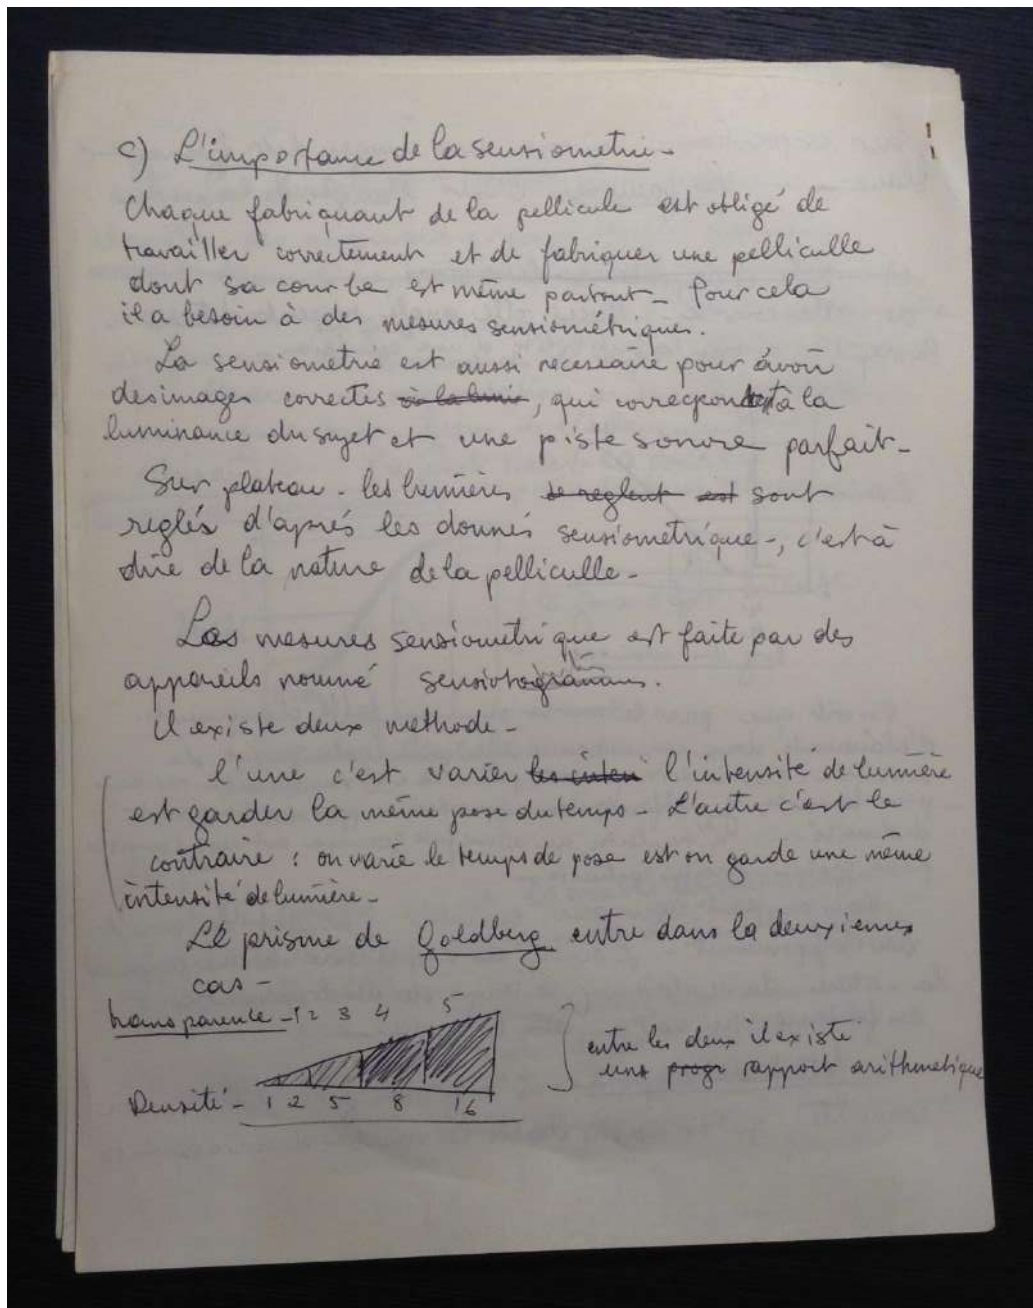 c) L'importance de la sensiometrie -
Chaque fabriquant de la pellicule est obligé de
travailler correctement et de fabriquer une pelliculle
dont sa courbe est même partout - Pour cela
il a besoin à des mesures sensiométriques.
La sensiometrie est aussi necessaire pour avoir
des images correctes , qui correspondent à la
luminance du sujet et une piste sonore parfait -
Sur plateau - les lumières se reglent est sont
reglés d'aprés les donnés sensiometrique -, c'est à
dire de la nature de la pelliculle -
Les mesures sensiometrique est faite par des
appareils nommé
Il existe deux methode -
l'une c'est varier les inten l'intensité de lumière
est garder la même pose du temps - L'autre c'est le
contraire : on varie le temps de pose est on garde une même
intensité de lumière -
Le prisme de Goldberg entre dans la deuxiemes
cas -
transparence - 1 2 3 4 5
entre les deux il existe
une progr rapport arithmetique
Densité - 1 2 5 8 16